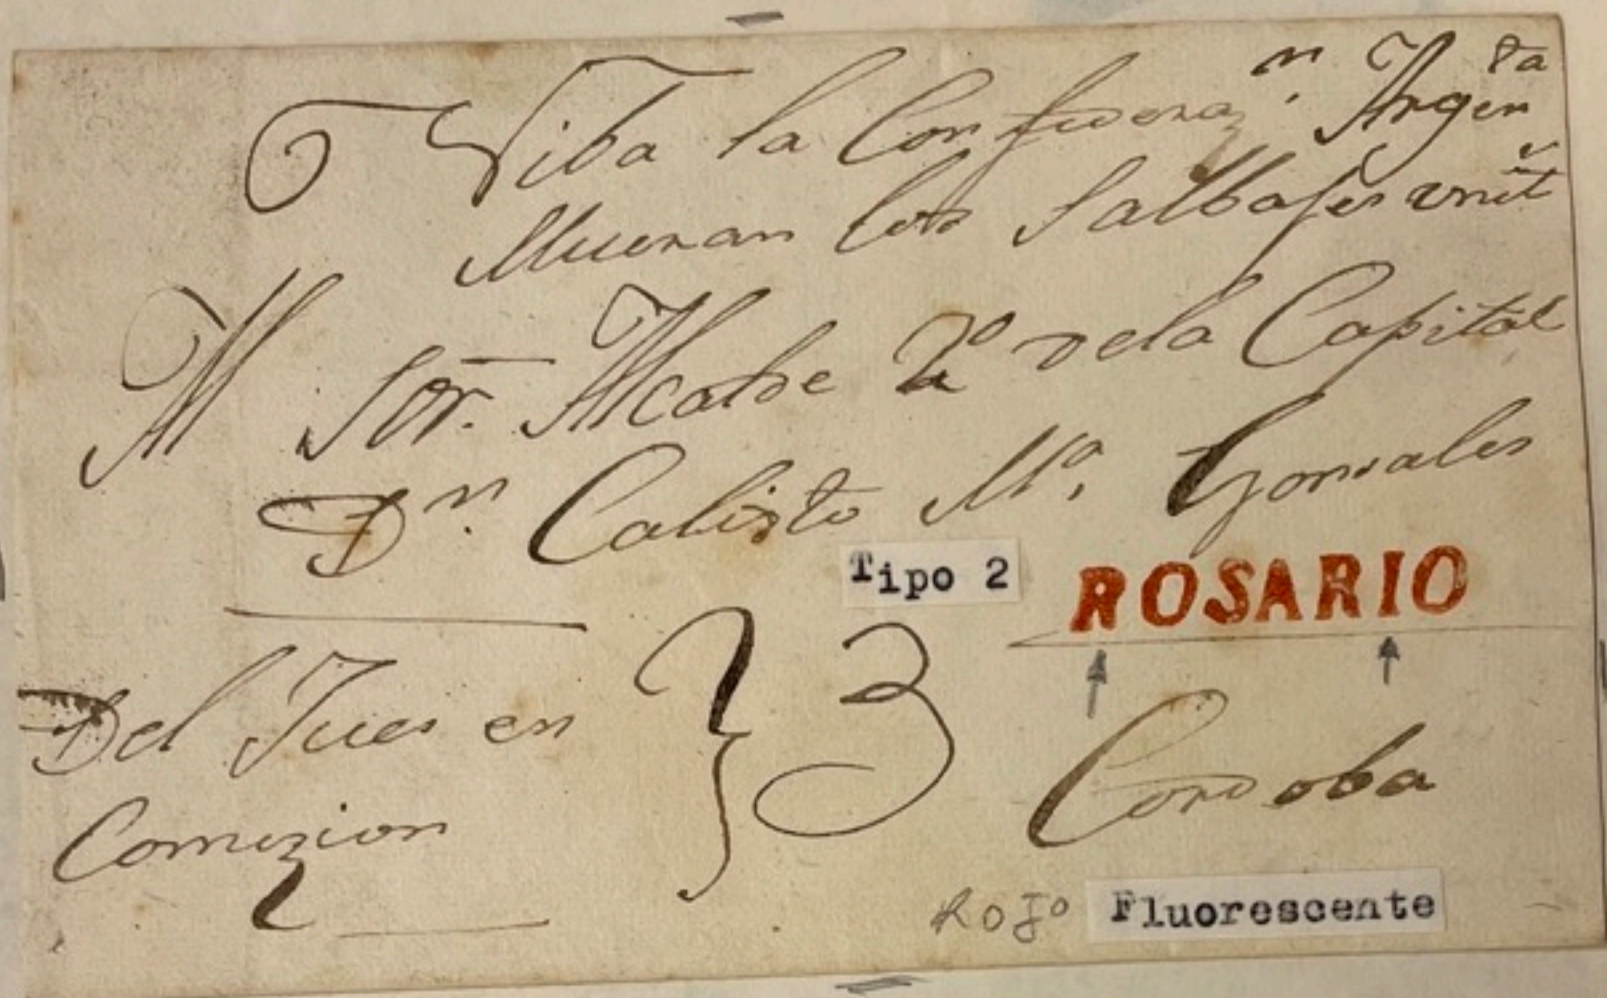 Viba la Confederaz.n Argenta
Mueran los Salbajes units
Al Sor. Alcalde 2o dela Capital
Dn. Calisto Ma. Gonsales
Tipo 2
ROSARIO
Del Jues en
Comizion
3
Cordoba
Rojo Fluorescente